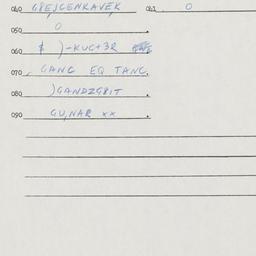 040 GREJGENKAVEK 042 O
050 O
060 $ )-KUC+3R
070 GANG EQ TANG.
080 )GANDZGRIT
090 GU,NAR XX